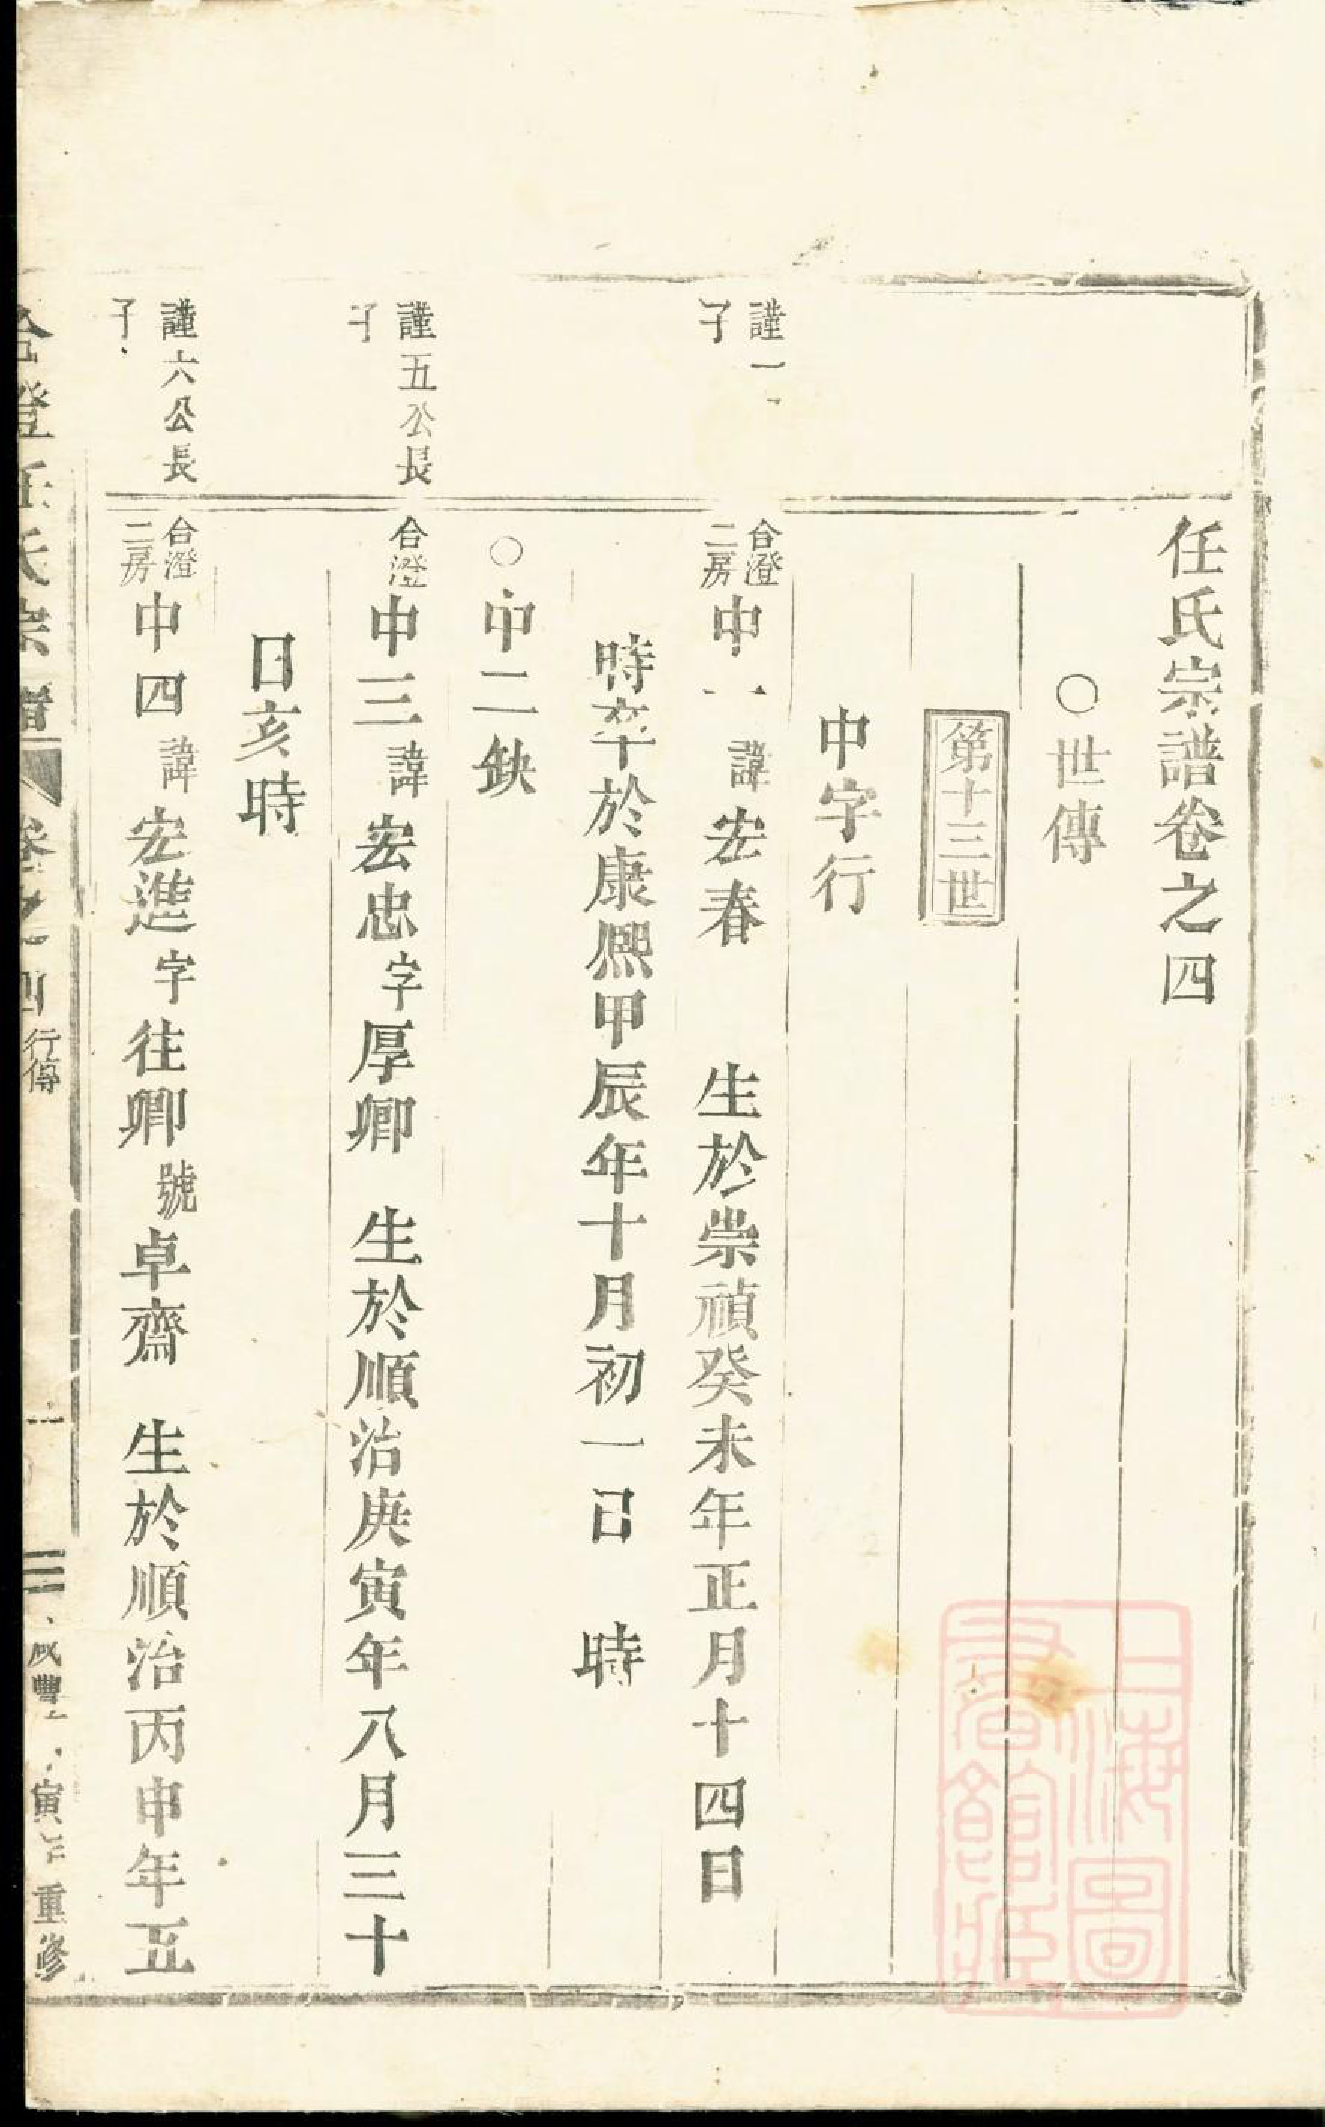 任氏宗譜卷之四
○世傳
第十三世
中字行
謹一
子
台澄
二房
中一諱宏春　生於崇禎癸未年正月十四日
時卒於康熙甲辰年十月初一日　時
○中二缺
謹五公長
子
台澄
中三諱宏忠字厚卿　生於順治庚寅年八月三十
日亥時
謹六公長
子
台澄
二房
中四諱宏進字往卿號卓齋　生於順治丙申年五
台澄任氏宗譜
卷之四
行傳
一
咸豐
寅年重修
上海圖
書館藏